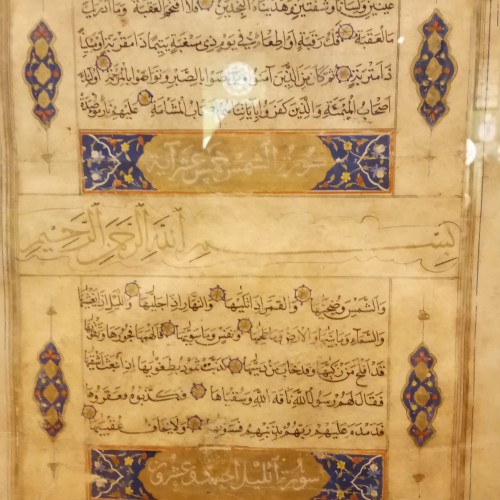 عَيْنَيْنِ وَلِسَانًا وَشَفَتَيْنِ وَهَدَيْنَاهُ النَّجْدَيْنِ فَلَا اقْتَحَمَ الْعَقَبَةَ وَمَا أَدْرَيكَ
مَا الْعَقَبَةُ فَكُّ رَقَبَةٍ أَوْ إِطْعَامٌ فِي يَوْمٍ ذِي مَسْغَبَةٍ يَتِيمًا ذَا مَقْرَبَةٍ أَوْ مِسْكِينًا
ذَا مَتْرَبَةٍ ثُمَّ كَانَ مِنَ الَّذِينَ آمَنُوا وَتَوَاصَوْا بِالصَّبْرِ وَتَوَاصَوْا بِالْمَرْحَمَةِ أُولَئِكَ
أَصْحَابُ الْمَيْمَنَةِ وَالَّذِينَ كَفَرُوا بِآيَاتِنَا هُمْ أَصْحَابُ الْمَشْأَمَةِ عَلَيْهِمْ نَارٌ مُوصَدَةٌ
سورة الشمس خمس عشر آية
بِسْمِ اللَّهِ الرَّحْمَنِ الرَّحِيمِ
وَالشَّمْسِ وَضُحَيهَا وَالْقَمَرِ إِذَا تَلَيهَا وَالنَّهَارِ إِذَا جَلَّيهَا وَاللَّيْلِ إِذَا يَغْشَيهَا
وَالسَّمَاءِ وَمَا بَنَيهَا وَالْأَرْضِ وَمَا طَحَيهَا وَنَفْسٍ وَمَا سَوَّيهَا فَأَلْهَمَهَا فُجُورَهَا وَتَقْوَيهَا
قَدْ أَفْلَحَ مَنْ زَكَّيهَا وَقَدْ خَابَ مَنْ دَسَّيهَا كَذَّبَتْ ثَمُودُ بِطَغْوَيهَا إِذِ انْبَعَثَ أَشْقَيهَا
فَقَالَ لَهُمْ رَسُولُ اللَّهِ نَاقَةَ اللَّهِ وَسُقْيَاهَا فَكَذَّبُوهُ فَعَقَرُوهَا
فَدَمْدَمَ عَلَيْهِمْ رَبُّهُمْ بِذَنْبِهِمْ فَسَوَّيهَا وَلَا يَخَافُ عُقْبَيهَا
سورة الليل احدى وعشرون